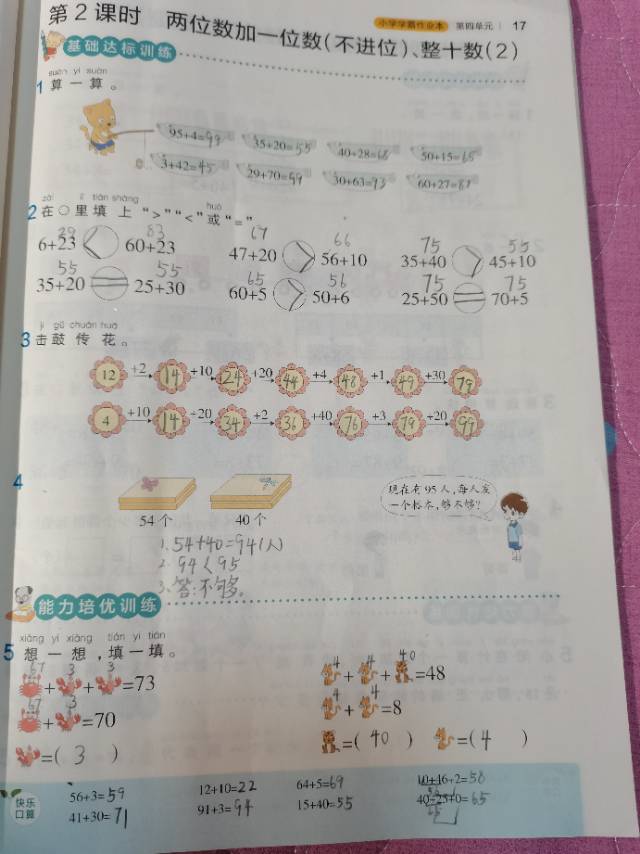 小学学霸作业本 第四单元 17
第2课时 两位数加一位数(不进位)、整十数(2)
基础达标训练
suàn yi suàn
1 算一算。
95+4=99 35+20=55 40+28=68 50+15=65
3+42=45 29+70=99 30+63=93 60+27=87
zài lǐ tián shàng huò
2 在○里填上“>”“<”或“=”。
29 83 67 66 75 55
6+23 < 60+23 47+20 > 56+10 35+40 > 45+10
55 55 65 56 75 75
35+20 = 25+30 60+5 > 50+6 25+50 = 70+5
jī gǔ chuán huā
3 击鼓传花。
12 +2 14 +10 24 +20 44 +4 48 +1 49 +30 79
4 +10 14 +20 34 +2 36 +40 76 +3 79 +20 99
4
现在有95人,每人发
一个松本,够不够?
54个 40个
1. 54+40=94(人)
2. 94<95
3. 答:不够。
能力培优训练
xiǎng yi xiǎng tián yi tián
5 想一想,填一填。
67 3 3 4 4 40
+ + =73 + + =48
67 3 4 4
+ =70 + =8
=( 3 ) =( 40 ) =( 4 )
快乐
口算
56+3=59 12+10=22 64+5=69 10+46+2=58
41+30=71 91+3=94 15+40=55 40+25+0=65